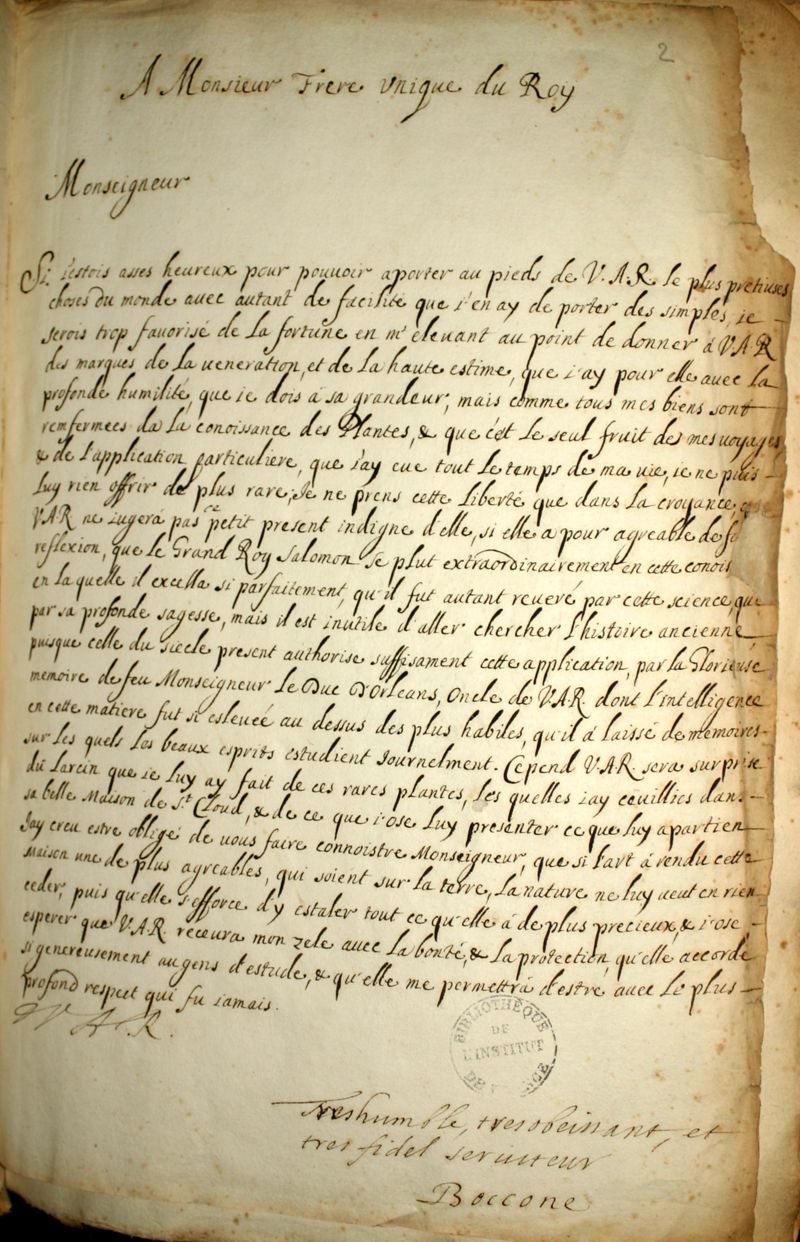 2
A Monsieur Frere Vnique du Roy
Monseigneur
Si i'estois asses heureux pour pouuoir aporter au pieds de V.A.R. le plus pretiuses
choses du monde auec autant de facilité que i'en ay de porter des simples, ie
serois trop fauorisé de la fortune en m'eleuant au point de donner á VAR
des marques de la ueneration, et de la haute estime, que i'ay pour elle auec la
profonde humilité, que ie dois á sa grandeur; mais comme tous mes biens sont
renfermees da la conoissance des Plantes, & que c'est le seul fruit des mes uoyages,
& de l'application particuliere, que i'ay eue tout le temps de ma uie, ie ne puis
luy rien offrir de plus rare; Je ne prens cette liberté que dans la croyance, q
VAR ne iugera pas ce petit present indigne d'elle, si elle a pour agreable de f
reflexion, que le Grand Roy Salomon se plut extraordinairement en cette conois
en la quelle il excella si parfaitement, qu'il fut autant reueré par cette science, que
par sa profonde sagesse, mais il est inutile d'aller chercher l'histoire ancienne
puisque celle du siecle present authorise suffisament cette application, par la Glorieuse
memoire de feu Monseigneur Le Duc D'Orleans, Oncle de VAR. dont l'intelligence
en cette matiere fut si esleuée au dessus des plus habiles, qu'il á laissé de memoires
sur les quels les beaux esprits estudient Journelment. Cepend VAR sera surprise
du larcin que ie luy ay fait de ces rares plantes, les quelles i'ay ceuillies dans
sa belle Maison de St Cloud, & de ce que i'ose luy presenter ce que luy apartien
J'ay creu estre obligé de uous faire connoistre Monseigneur, que si l'art á rendu cette
maison une de plus agreables, qui soient sur la terre, la nature ne luy ueut en rien
ceder, puis qu'elle s'efforce d'y estaler tout ce qu'elle á de plus precieux, & i'ose
esperer que VAR receura mon zele auec la bonté, & la protection, qu'elle accorde
si genereusement au gens d'estude, & qu'elle me permettrá d'estre auec le plus
profond respect qui fu iamais.
D V.A.R.
BIBLIOTHÈQUE
DE
L'INSTITUT
DE FRANCE
Treshumble, tresobeissant, et
tres fidel seruiteur
Boccone